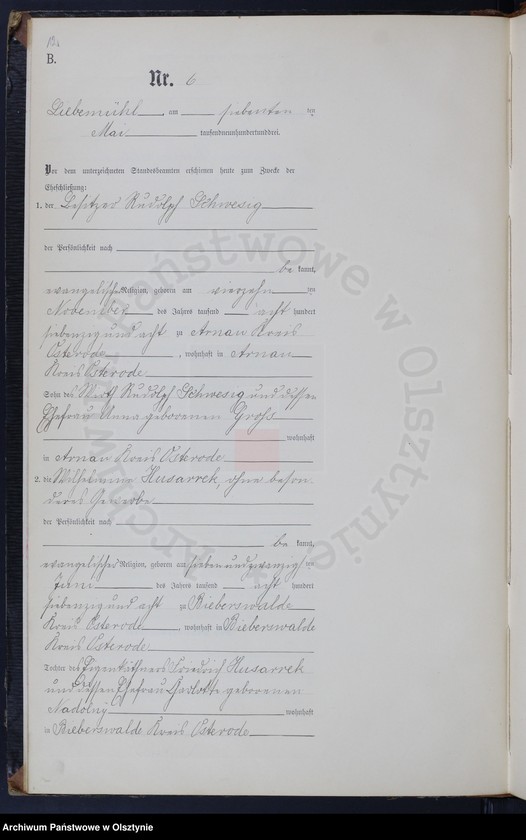 12.
B.
Nr. 6
Liebemühl, am siebenten ten
Mai tausendneunhundertunddrei.
Vor dem unterzeichneten Standesbeamten erschienen heute zum Zwecke der
Eheschließung:
1. der Besitzer Rudolph Schwesig
der Persönlichkeit nach
be kannt,
evangelischer Religion, geboren am vierzehnten
November des Jahres tausend acht hundert
siebenzig und acht zu Arnau Kreis
Osterode, wohnhaft in Arnau
Kreis Osterode
Sohn des Wirth Rudolph Schwesig und dessen
Ehefrau Anna geborenen Groß
wohnhaft
in Arnau Kreis Osterode
2. die Wilhelmine Husarrek, ohne beson
deres Gewerbe
der Persönlichkeit nach
be kannt,
evangelischer Religion, geboren am siebenundzwanzigsten
Juni des Jahres tausend acht hundert
siebenzig und acht zu Bieberswalde
Kreis Osterode, wohnhaft in Bieberswalde
Kreis Osterode
Tochter des Eigenkäthners Friedrich Husarrek
und dessen Ehefrau Charlotte geborenen
Nadolny wohnhaft
in Bieberswalde Kreis Osterode
Archiwum Państwowe w Olsztynie
Archiwum Państwowe w Olsztynie